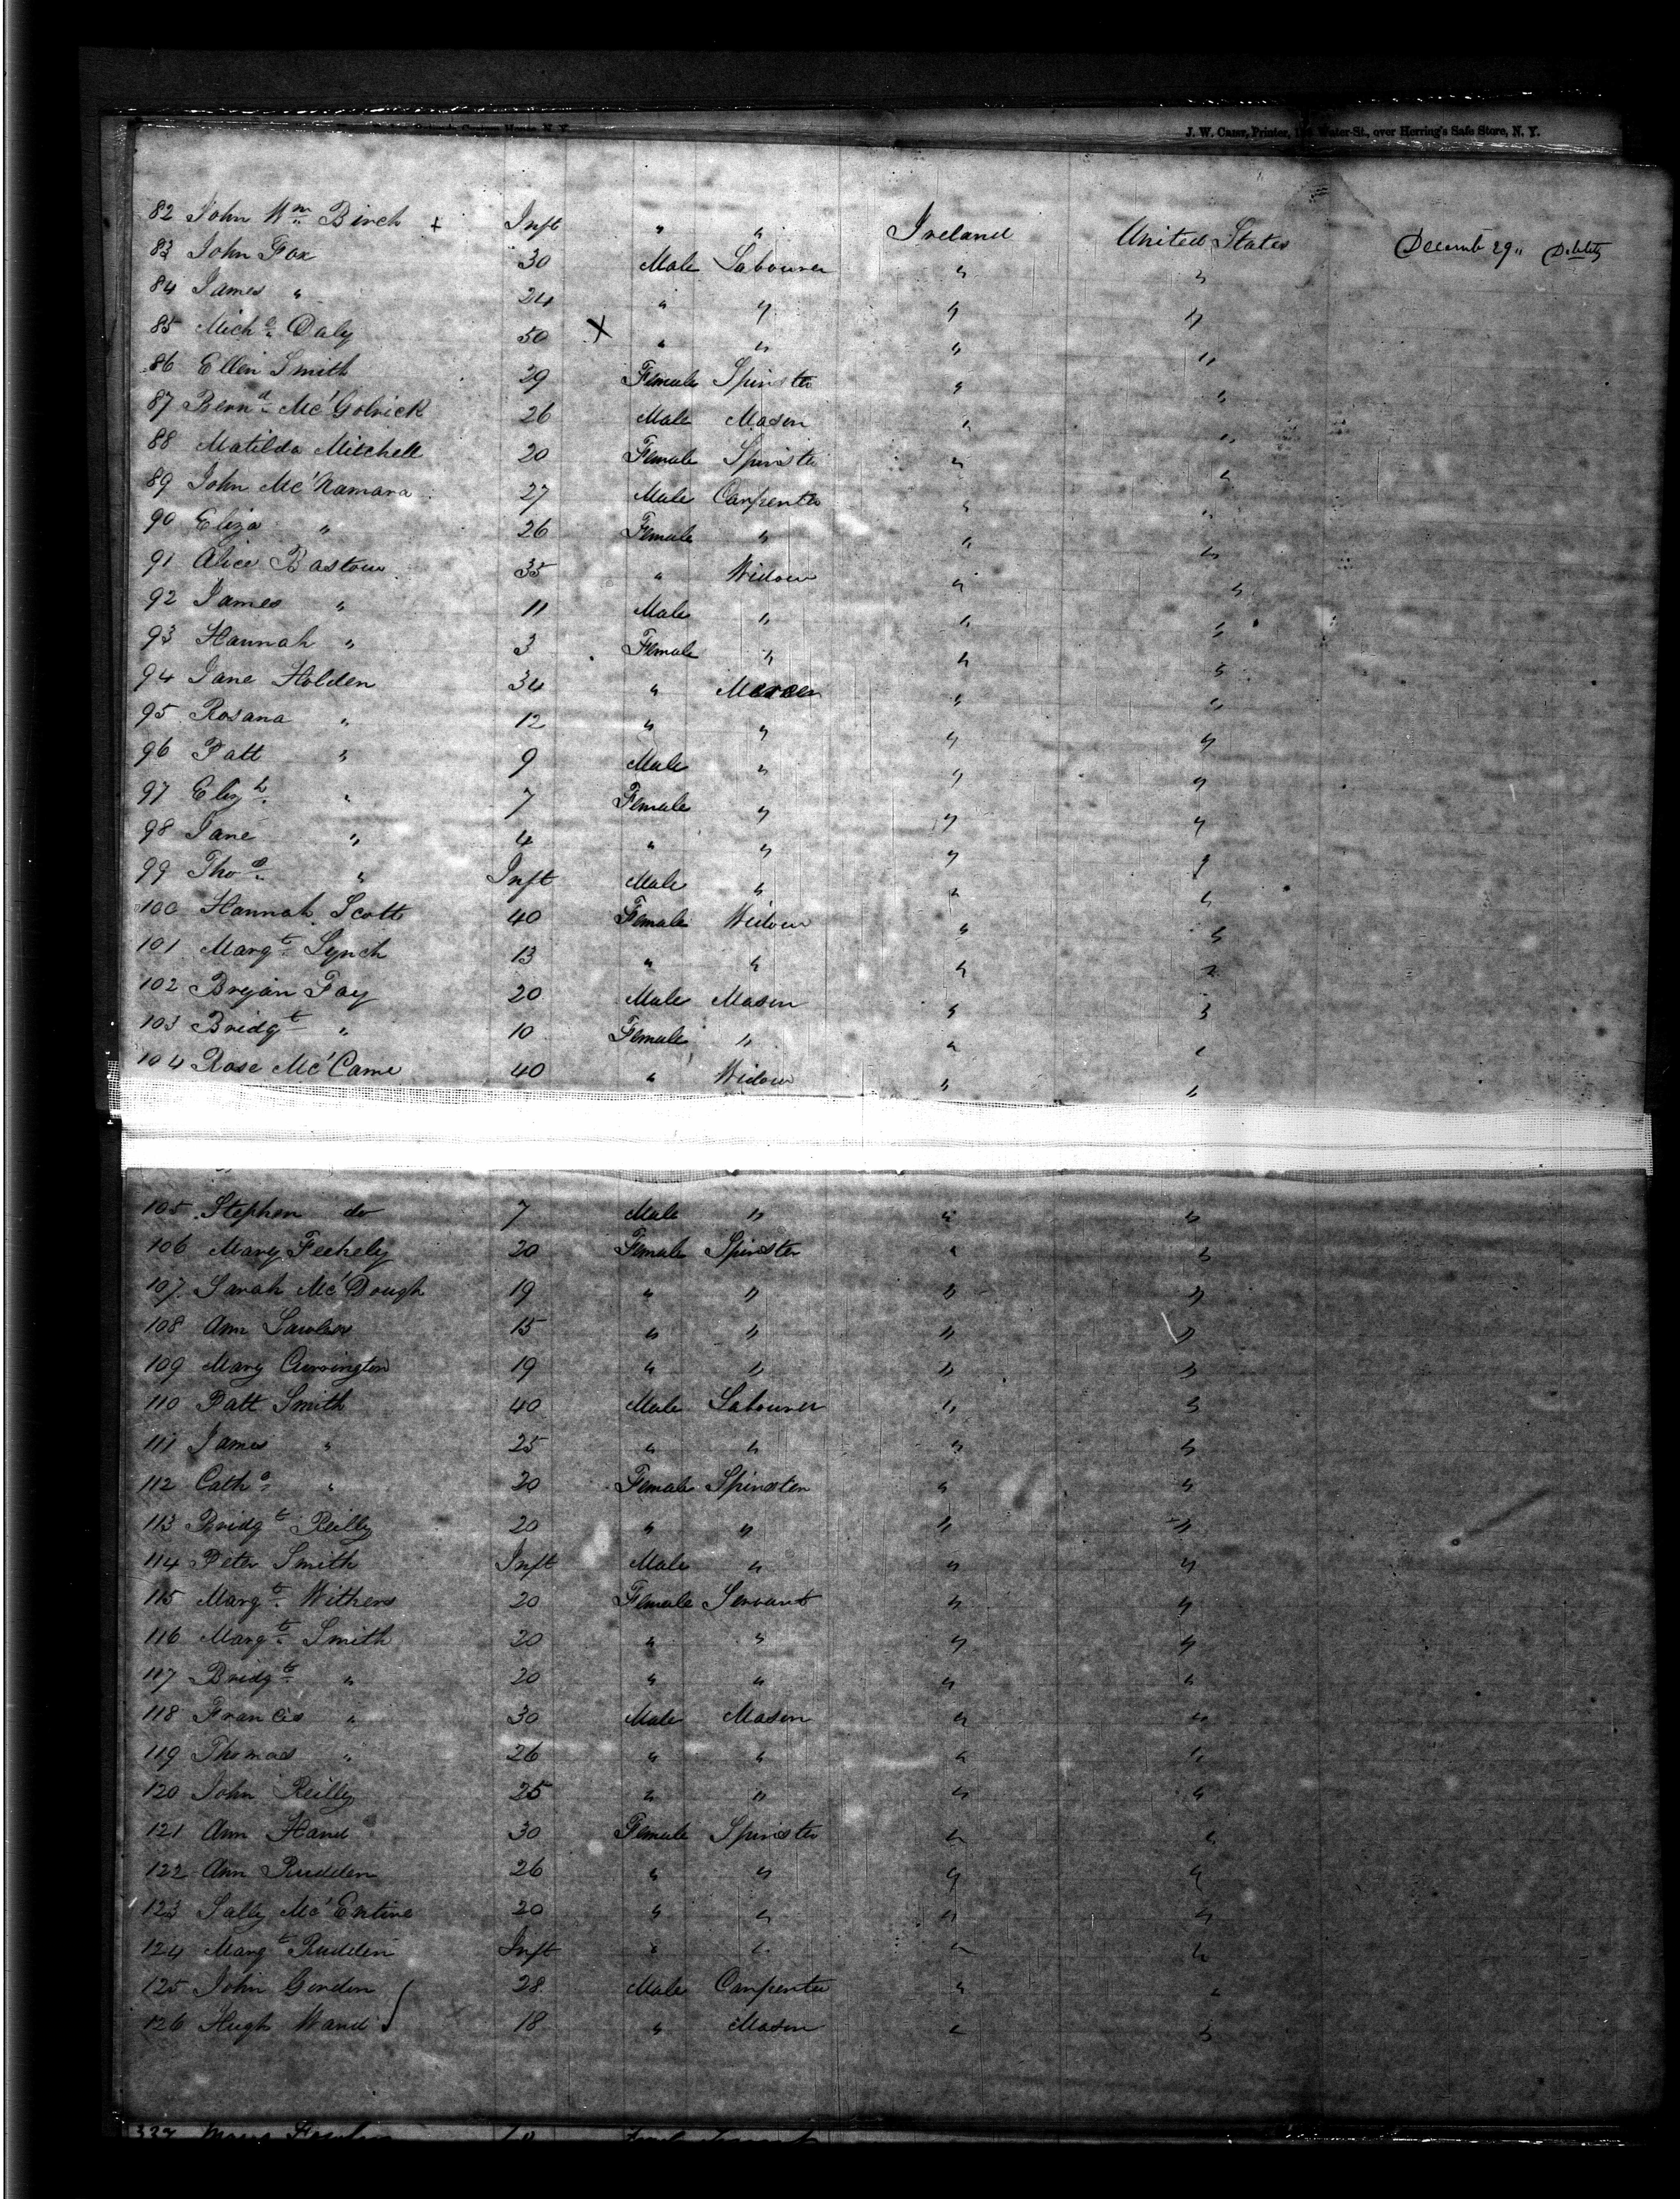 J. W. Carr, Printer, Water-St., over Herring's Safe Store, N. Y.
82 John Wm Birch + Inft " " Ireland United States December 29 " Debility
83 John Fox 30 Male Labourer " "
84 James " 24 " " " "
85 Michl Daly 50 X " " " "
86 Ellen Smith 29 Female Spinster " "
87 Bernd Mc'Golrick 26 Male Mason " "
88 Matilda Mitchell 20 Female Spinster " "
89 John Mc'Namara 27 Male Carpenter " "
90 Eliza " 26 Female " " "
91 Alice Bastow 35 " Widow " "
92 James " 11 Male " " "
93 Hannah " 3 Female " " "
94 Jane Holden 34 " Mercer " "
95 Rosana " 12 " " " "
96 Patt " 9 Male " " "
97 Elizh " 7 Female " " "
98 Jane " 4 " " " "
99 Thos " Inft Male " " "
100 Hannah Scott 40 Female Widow " "
101 Margt Lynch 13 " " " "
102 Bryan Fay 20 Male Mason " "
103 Bridgt " 10 Female " " "
104 Rose Mc'Came 40 " Widow " "
105 Stephen do 7 Male " " "
106 Mary Feehely 20 Female Spinster " "
107 Sarah Mc'Dough 19 " " " "
108 Ann Lawler 15 " " " "
109 Mary Currington 19 " " " "
110 Patt Smith 40 Male Labourer " "
111 James " 25 " " " "
112 Cathe " 20 Female Spinster " "
113 Bridgt Reilly 20 " " " "
114 Peter Smith Inft Male " " "
115 Margt Withers 20 Female Servant " "
116 Margt Smith 20 " " " "
117 Bridgt " 20 " " " "
118 Francis " 30 Male Mason " "
119 Thomas " 26 " " " "
120 John Reilly 25 " " " "
121 Ann Hand 30 Female Spinster " "
122 Ann Rudden 26 " " " "
123 Sally Mc'Entire 20 " " " "
124 Margt Rudden Inft " " " "
125 John Gordon 28 Male Carpenter " "
126 Hugh Wand 18 " Mason " "